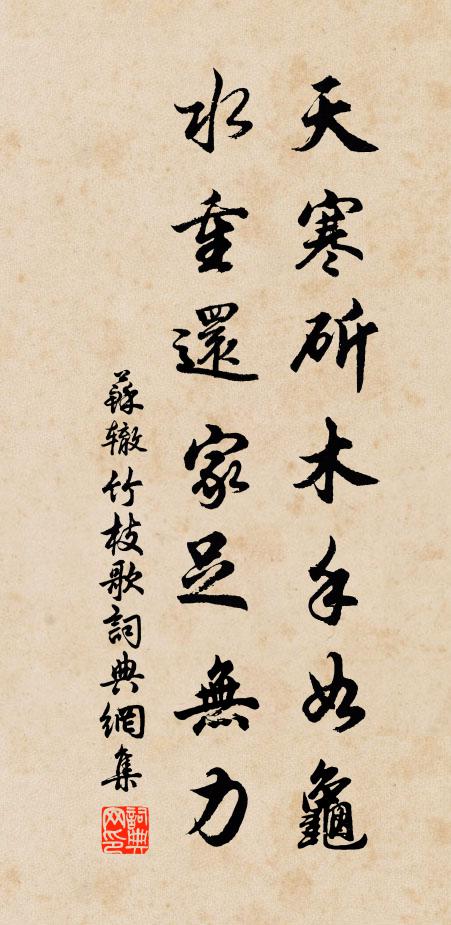 天寒斫木手如龜
水重還家足無力
蘇辙竹枝歌詞典網集
詞典
网印